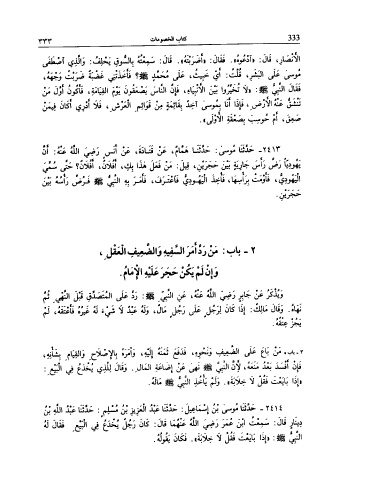 333 كتاب الخصومات ٣٣٣
الأَنْصَارِ، قالَ: «ادْعُوهُ». فَقَالَ: «أَضَرَبْتَهُ؟». قالَ: سَمِعْتُهُ بِالسُّوقِ يَحْلِفُ: وَالَّذِي اصْطَفَى
مُوسىٰ عَلَى البَشَرِ، قُلْتُ: أَيْ خَبِيثُ، عَلَى مُحَمَّدٍ ﷺ؟ فَأَخَذَتْنِي غَضْبَةٌ ضَرَبْتُ وَجْهَهُ،
فَقَالَ النَّبِيُّ ﷺ: «لَا تُخَيِّرُوا بَيْنَ الأَنْبِيَاءِ، فَإِنَّ النَّاسَ يَصْعَقُونَ يَوْمَ القِيَامَةِ، فَأَكُونُ أَوَّلَ مَنْ
تَنْشَقُّ عَنْهُ الأَرْضُ، فَإِذَا أَنَا بِمُوسىٰ آخِذٌ بِقَائِمَةٍ مِنْ قَوَائِمِ العَرْشِ، فَلَا أَدْرِي أَكَانَ فِيمَنْ
صَعِقَ، أَمْ حُوسِبَ بِصَعْقَةِ الأُولَى».
٢٤١٣- حَدَّثَنَا مُوسىٰ: حَدَّثَنَا هَمَّامٌ، عَنْ قَتَادَةَ، عَنْ أَنَسٍ رَضِيَ اللَّهُ عَنْهُ: أَنَّ
يَهُودِيّاً رَضَّ رَأْسَ جَارِيَةٍ بَيْنَ حَجَرَيْنِ، قِيلَ: مَنْ فَعَلَ هٰذَا بِكِ، أَفُلَانٌ، أَفُلَانٌ؟ حَتَّى سُمِّيَ
اليَهُودِيُّ، فَأَوْمَتْ بِرَأْسِهَا، فَأُخِذَ اليَهُودِيُّ فَاعْتَرَفَ، فَأَمَرَ بِهِ النَّبِيُّ ﷺ فَرُضَّ رَأْسُهُ بَيْنَ
حَجَرَيْنِ.
٢ - باب: مَنْ رَدَّ أَمْرَ السَّفِيهِ وَالضَّعِيفِ العَقْلِ،
وَإِنْ لَمْ يَكُنْ حَجَرَ عَلَيْهِ الإِمَامُ.
وَيُذْكَرُ عَنْ جَابِرٍ رَضِيَ اللَّهُ عَنْهُ، عَنِ النَّبِيِّ ﷺ: رَدَّ عَلَى المُتَصَدِّقِ قَبْلَ النَّهْيِ ثُمَّ
نَهَاهُ. وَقَالَ مَالِكٌ: إِذَا كَانَ لِرَجُلٍ عَلَى رَجُلٍ مَالٌ، وَلَهُ عَبْدٌ لَا شَيْءَ لَهُ غَيْرُهُ فَأَعْتَقَهُ، لَمْ
يَجُزْ عِتْقُهُ.
مَنْ بَاعَ عَلَى الضَّعِيفِ وَنَحْوِهِ، فَدَفَعَ ثَمَنَهُ إِلَيْهِ، وَأَمَرَهُ بِالإِصْلَاحِ وَالقِيَامِ بِشَأْنِهِ،
فَإِنْ أَفْسَدَ بَعْدُ مَنَعَهُ، لِأَنَّ النَّبِيَّ ﷺ نَهَىٰ عَنْ إِضَاعَةِ المَالِ. وَقَالَ لِلَّذِي يُخْدَعُ فِي البَيْعِ:
«إِذَا بَايَعْتَ فَقُلْ لَا خِلَابَةَ». وَلَمْ يَأْخُذِ النَّبِيُّ ﷺ مَالَهُ.
٢٤١٤- حَدَّثَنَا مُوسىٰ بْنُ إِسْمَاعِيلَ: حَدَّثَنَا عَبْدُ العَزِيزِ بْنُ مُسْلِمٍ: حَدَّثَنَا عَبْدُ اللَّهِ بْنُ
دِينَارٍ قَالَ: سَمِعْتُ ابْنَ عُمَرَ رَضِيَ اللَّهُ عَنْهُمَا قَالَ: كَانَ رَجُلٌ يُخْدَعُ فِي البَيْعِ فَقَالَ لَهُ
النَّبِيُّ ﷺ: «إِذَا بَايَعْتَ فَقُلْ لَا خِلَابَةَ». فَكَانَ يَقُولُهُ.